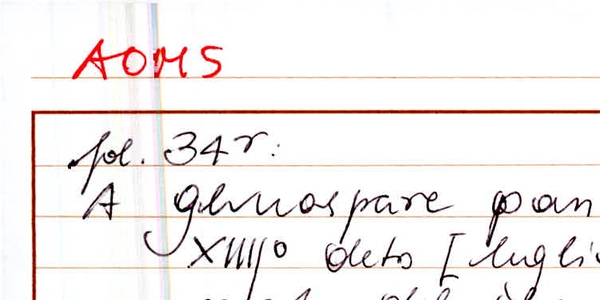 AOMS
fol. 34r:
A ghuaspare pan
XIIIJº deto [lugli